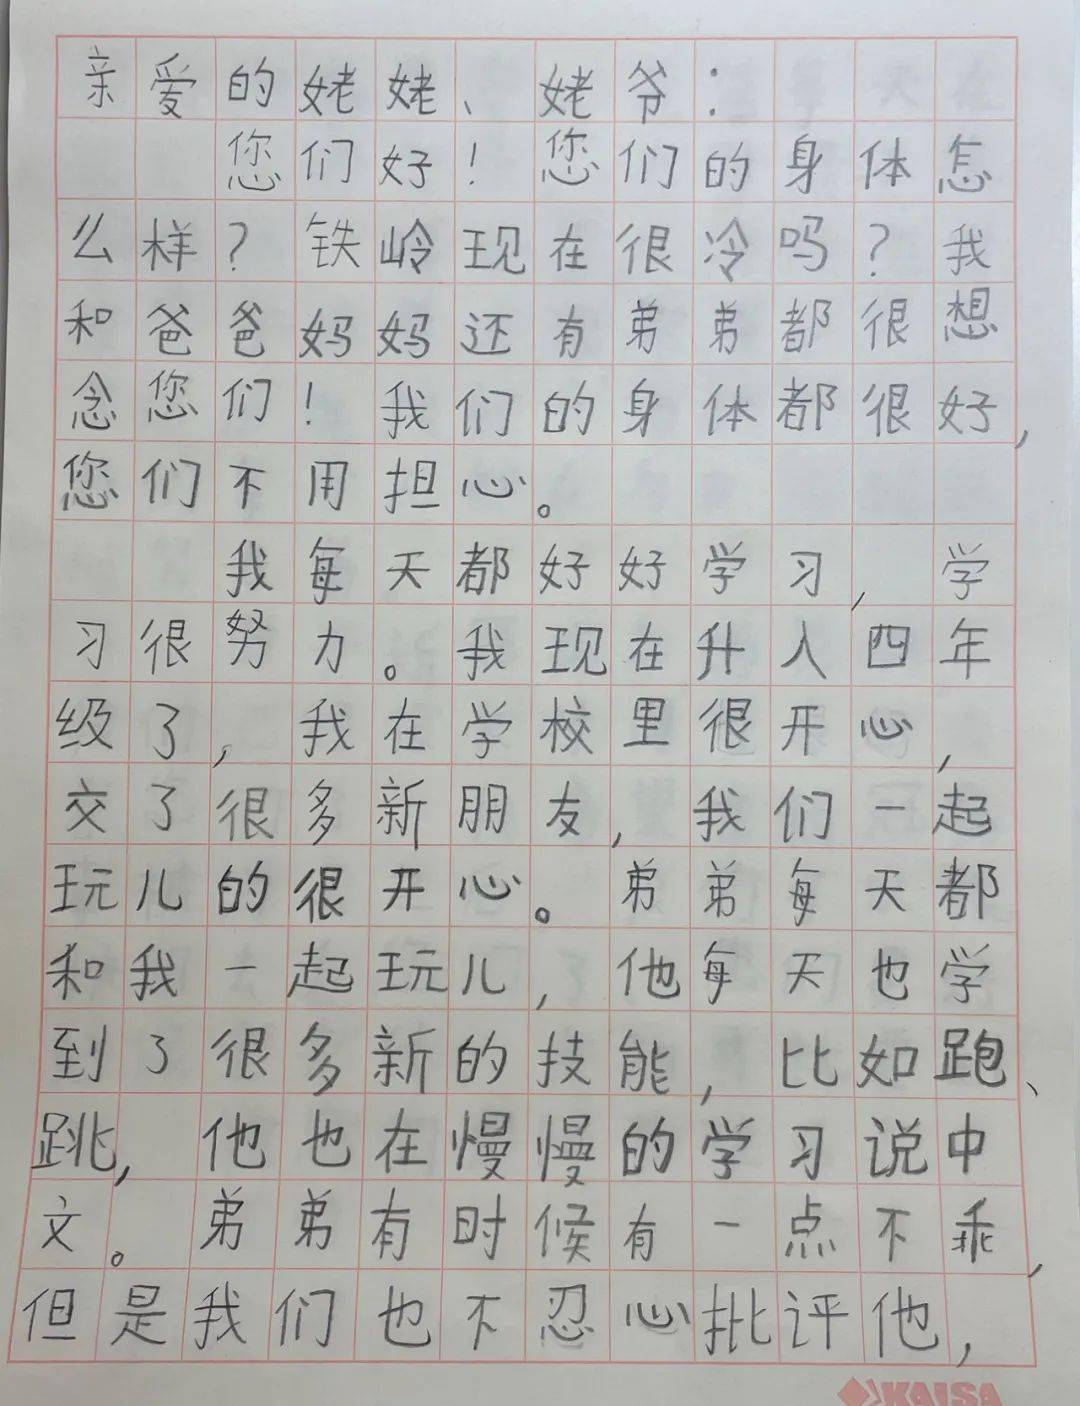 亲爱的姥姥、姥爷：
您们好！您们的身体怎
么样？铁岭现在很冷吗？我
和爸爸妈妈还有弟弟都很想
念您们！我们的身体都很好，
您们不用担心。
我每天都好好学习，学
习很努力。我现在升入四年
级了，我在学校里很开心，
交了很多新朋友，我们一起
玩儿的很开心。弟弟每天都
和我一起玩儿，他每天也学
到了很多新的技能，比如跑、
跳，他也在慢慢的学习说中
文。弟弟有时候有一点不乖，
但是我们也不忍心批评他，
KAISA